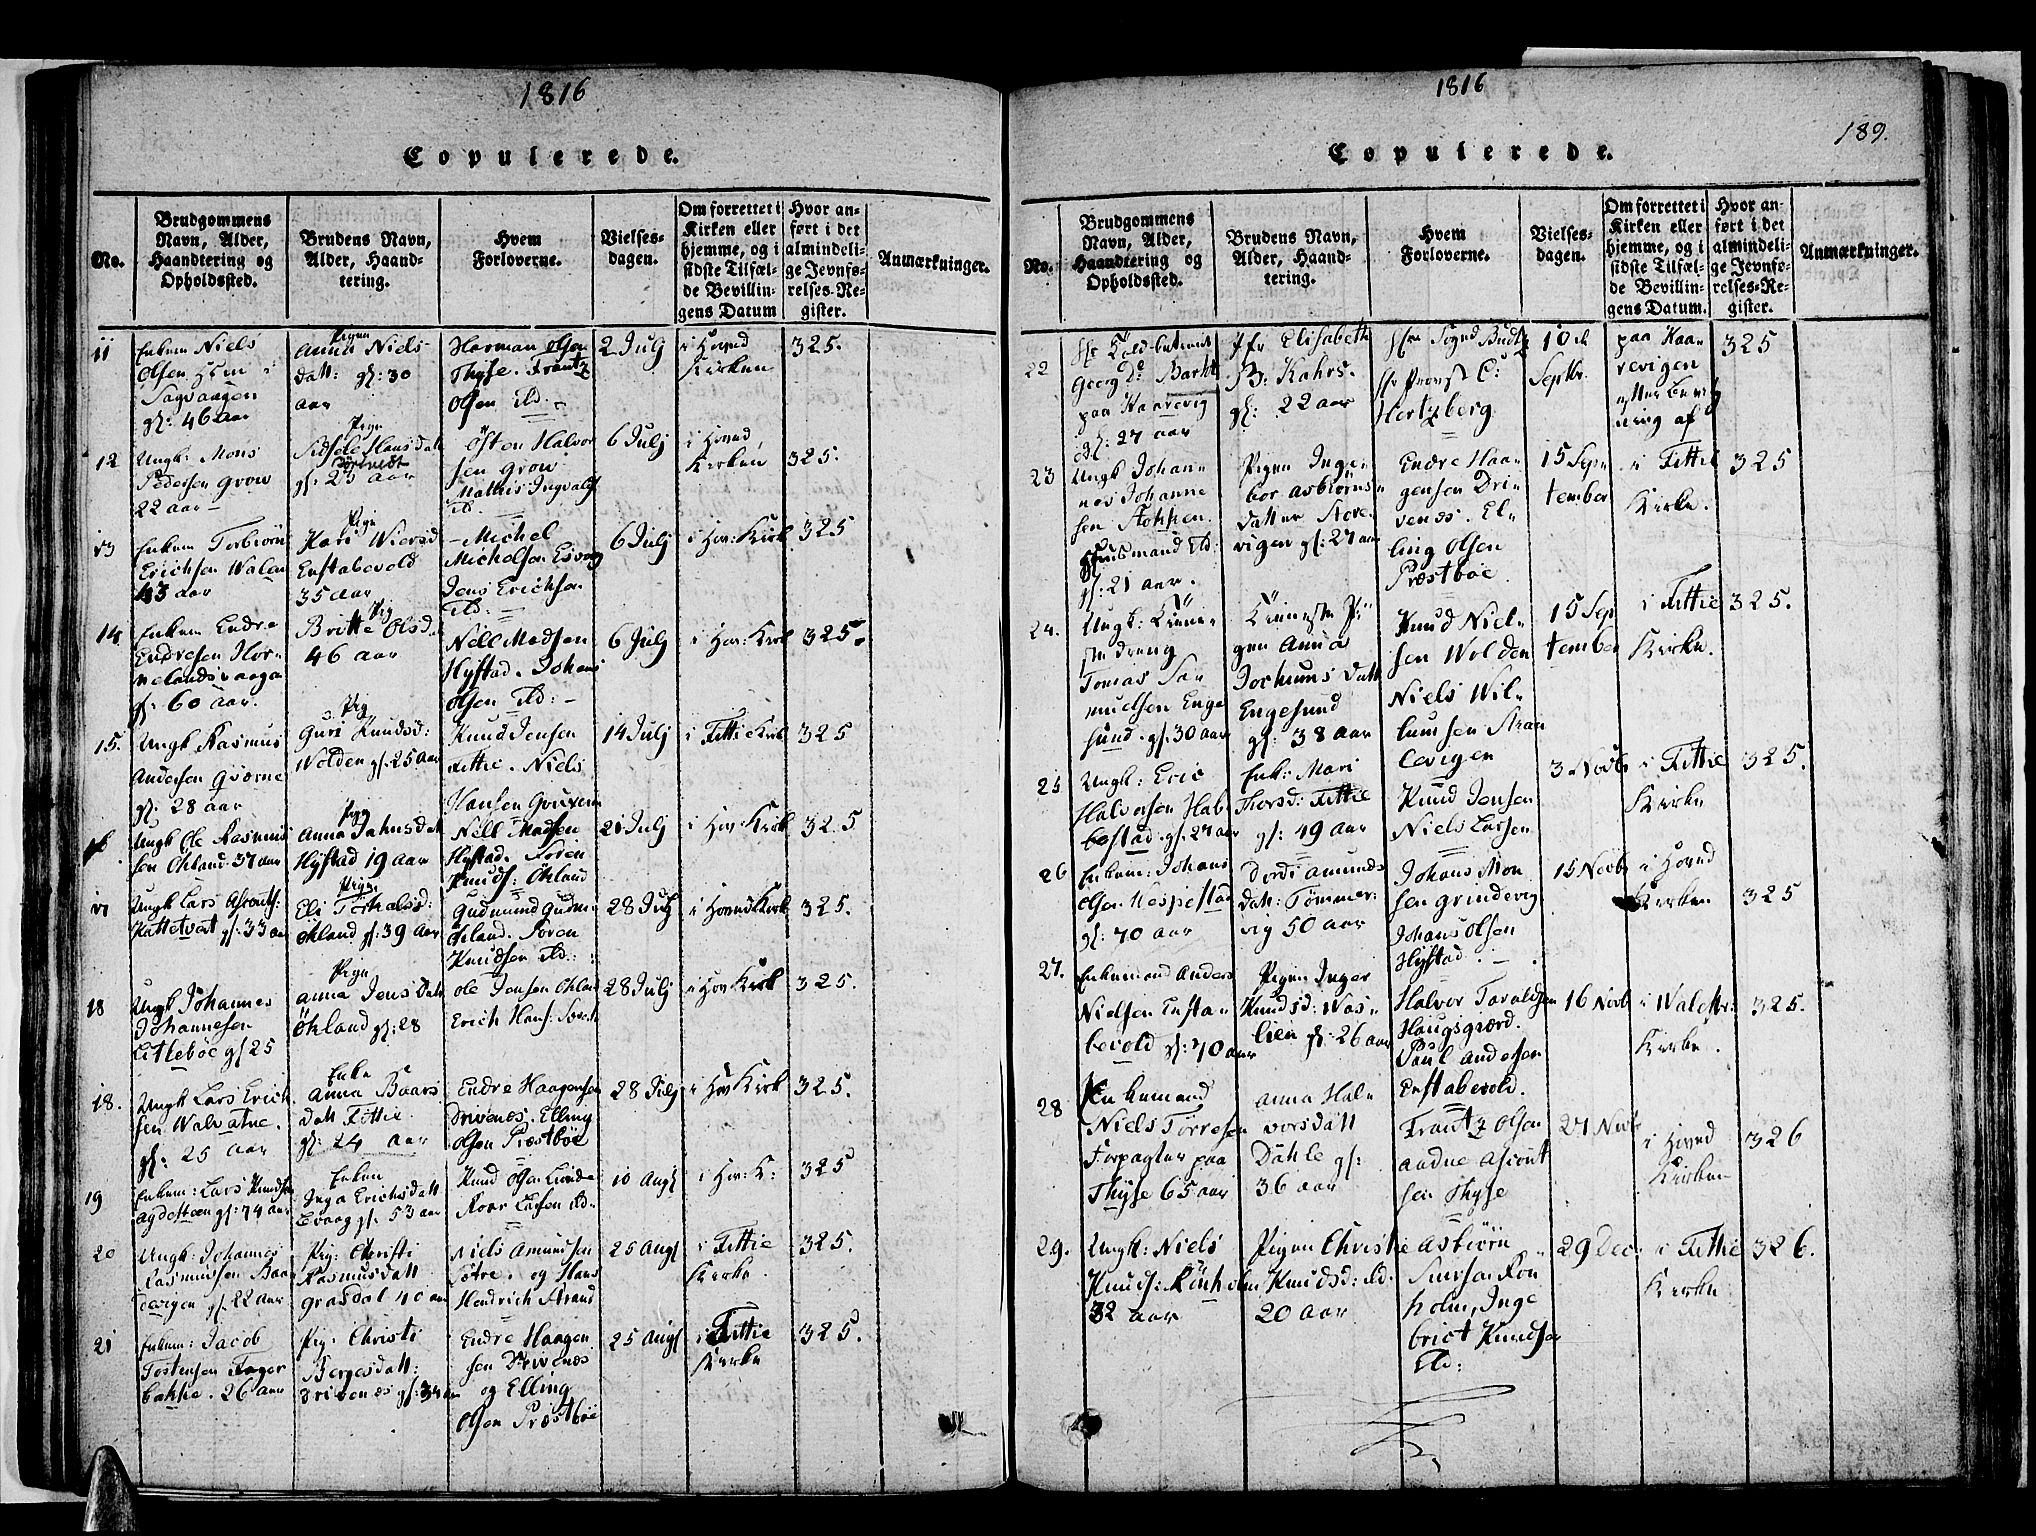 1816
Copulerede.
No.
Brudgommens
Navn, Alder,
Haandtering og
Opholdssted.
Brudens Navn,
Alder, Haand-
tering.
Hvem
Forloverne.
Vielses-
dagen.
Om forrettet i
Kirken eller
hjemme, og i
sidste Tilfæl-
de Bevillin-
gens Datum
Hvor an-
ført i det
almindeli-
ge Jevnfø-
relses-Re-
gister.
Anmærkninger.
11
Enkem Niels
Olsen
gl: 46 aar
Pigen
Anna Niels
datt: gl: 30
aar
Herman Olsen
Thyse. Frantz
Olsen ibd:
2 Julj
i Hoved
Kirken
325.
12
Ungk: Mons
Pedersen Grow
22 aar
Pign
Hansdatt
gl: 23 aar
Östen Halvor
sen Grow
Mathis Ingvalds
6 Julj
i Hoved
Kirken
325.
13
Enkem Torbiörn
Erichsen
43 aar
Pign
Kari
Enstabevold
35 aar
Michel
Michelsen
Jens Erichsen
ibd:
6 Julj
i Hov: Kirk
325
14
Enkem Endre
Endresen
gl: 60 aar.
Pig
Britte Olsd.
46 aar
Nell Madsen
Hystad. Johans
Olsen ibd:
6 Julj
i Hov: Kirk
325.
15.
Ungk Rasmus
Andersen
gl: 28 aar
Pig
Guri Knudsd:
Wolden gl: 25 aar
Knud Jensen
Fittie. Niels
Hansen
14 Julj
i Fittie Kirk
325
16
Ungk Ole Rasmus
sen Öhland 37 aar
Pign
Anna Jahnsdatt
Hystad 19 aar
Nell Madsen
Hystad. Sören
Knuds: Öhland
21 Julj
i Hov: Kirk
325
17
Ungk Lars
gl: 33 aar
Pigen
Eli
Öhland gl: 39 aar
Gudmund
Öhland. Sören
Knudsen ibd:
28 Julj
i Hoved Kirk
325.
18
Ungk Johannes
Johannesen
Litlebøe gl 25
Pign
Anna Jens Datt
Öhland gl: 28
Ole Jensen Öhland
Erich Hans:
28 Julj
i Hov Kirk
325.
18.
Ungk Lars Erich
sen Walvatne.
gl: 25 aar
Enke
Anna Baars
datt Fittie
gl: 24 aar
Endre Haagensen
Drivenes. Elling
Olsen Præstbøe
28 Julj
i Hov Kirk
325.
19
Enkem: Lars Knudsen
Agdesteen gl: 74 aar
Enken
Inga Erichsdatt
gl: 53 aar
Knud Olsen
Roar Larsen ibd
10 Aug
i Hov: K:
325
20
Ungk: Johannes
Rasmusen
gl 22 aar
Pig: Christi
Rasmusdatt
Grasdal 40 aar
Niels Amundsen
Sötre. og Hans
Hendrich Strand
25 Aug
i Fittie
Kirke
325.
21
Enkem: Jacob
Tostensen
bakke. 26 aar
Pig: Christi
Bergesdatt:
Drivenes gl: 34 aar
Endre Haagen
sen Drivenes
og Elling
Olsen Præstbøe
25 Aug
i Fittie
Kirke
325.
1816
189.
Copulerede.
No.
Brudgommens
Navn, Alder,
Haandtering og
Opholdssted.
Brudens Navn,
Alder, Haand-
tering.
Hvem
Forloverne.
Vielses-
dagen.
Om forrettet i
Kirken eller
hjemme, og i
sidste Tilfæl-
de Bevillin-
gens Datum.
Hvor an-
ført i det
almindeli-
ge Jevnfø-
relses-Re-
gister.
Anmærkninger.
22
Hr Toldbetient
Georg
paa Kaarevig
gl: 27 aar
Jfr Elisabeth
B: Kahrs.
gl: 22 aar
Hr Provst C:
Hertzberg
10 de
Septbr.
paa Kaa
revigen
325
23
Ungk Johan
nes Johanne
sen
Huusmand ibd:
gl: 21 aar.
Pigen Inge
bor Asbiörns
datter Kore
vigen gl: 27 aar
Endre Haa
gensen Dri
venes. El
ling Olsen
Præstbøe
15 Sep
tember
i Fittie
Kirke.
325
24.
Tomas Sa
muelsen Enge
sund. gl: 30 aar
gen Anna
Jochums datt
Engesund
gl: 38 aar
Knud Niel
sen Wolden
Niels Wil
lumsen
15 Sep
tember
i Fittie
Kirke.
325.
25
Ungk: Eric
Halvorsen Hab
bestad. gl: 27 aar
Enk: Mari
Thorsd: Fittie
gl: 49 aar
Knud Jensen
Niels Larsen
3 Novbr
i Fittie
Kirke
325.
26
Enkem: Johans
Olsen Wespestad
gl: 70 aar
Dordi Amunds
datt: Tömmer
vig 50 aar
Johans Mon
sen Grindevig
Johans Olsen
Hystad.
15 Novbr
i Hoved
Kirken
325
27.
Enkemand Anders
Nielsen Ensta
bevold gl: 70 aar
Pigen Inger
Knudsd: Was
lien gl: 26 aar
Halvor Taraldsen
Haugsgiærd.
Paul Andersen
Enstabevold.
16 Novb
i
Kirke.
325.
28
Enkemand
Niels Torresen
Forpagter paa
Thyse 65 aar
Anna Hal
vorsdatt
Dahle gl:
36 aar
Frantz Olsen
Aadne
sen Thyse
27 Novb
i Hoved
Kirken
326
29.
Ungk: Niels
Knuds: Rönholm
32 aar
Pigen Christie
Knudsd: ibd.
20 aar
Asbiörn
holm, Inge
brict Knudsen
ibd:
29 Dec:
i Fittie
Kirke
326.